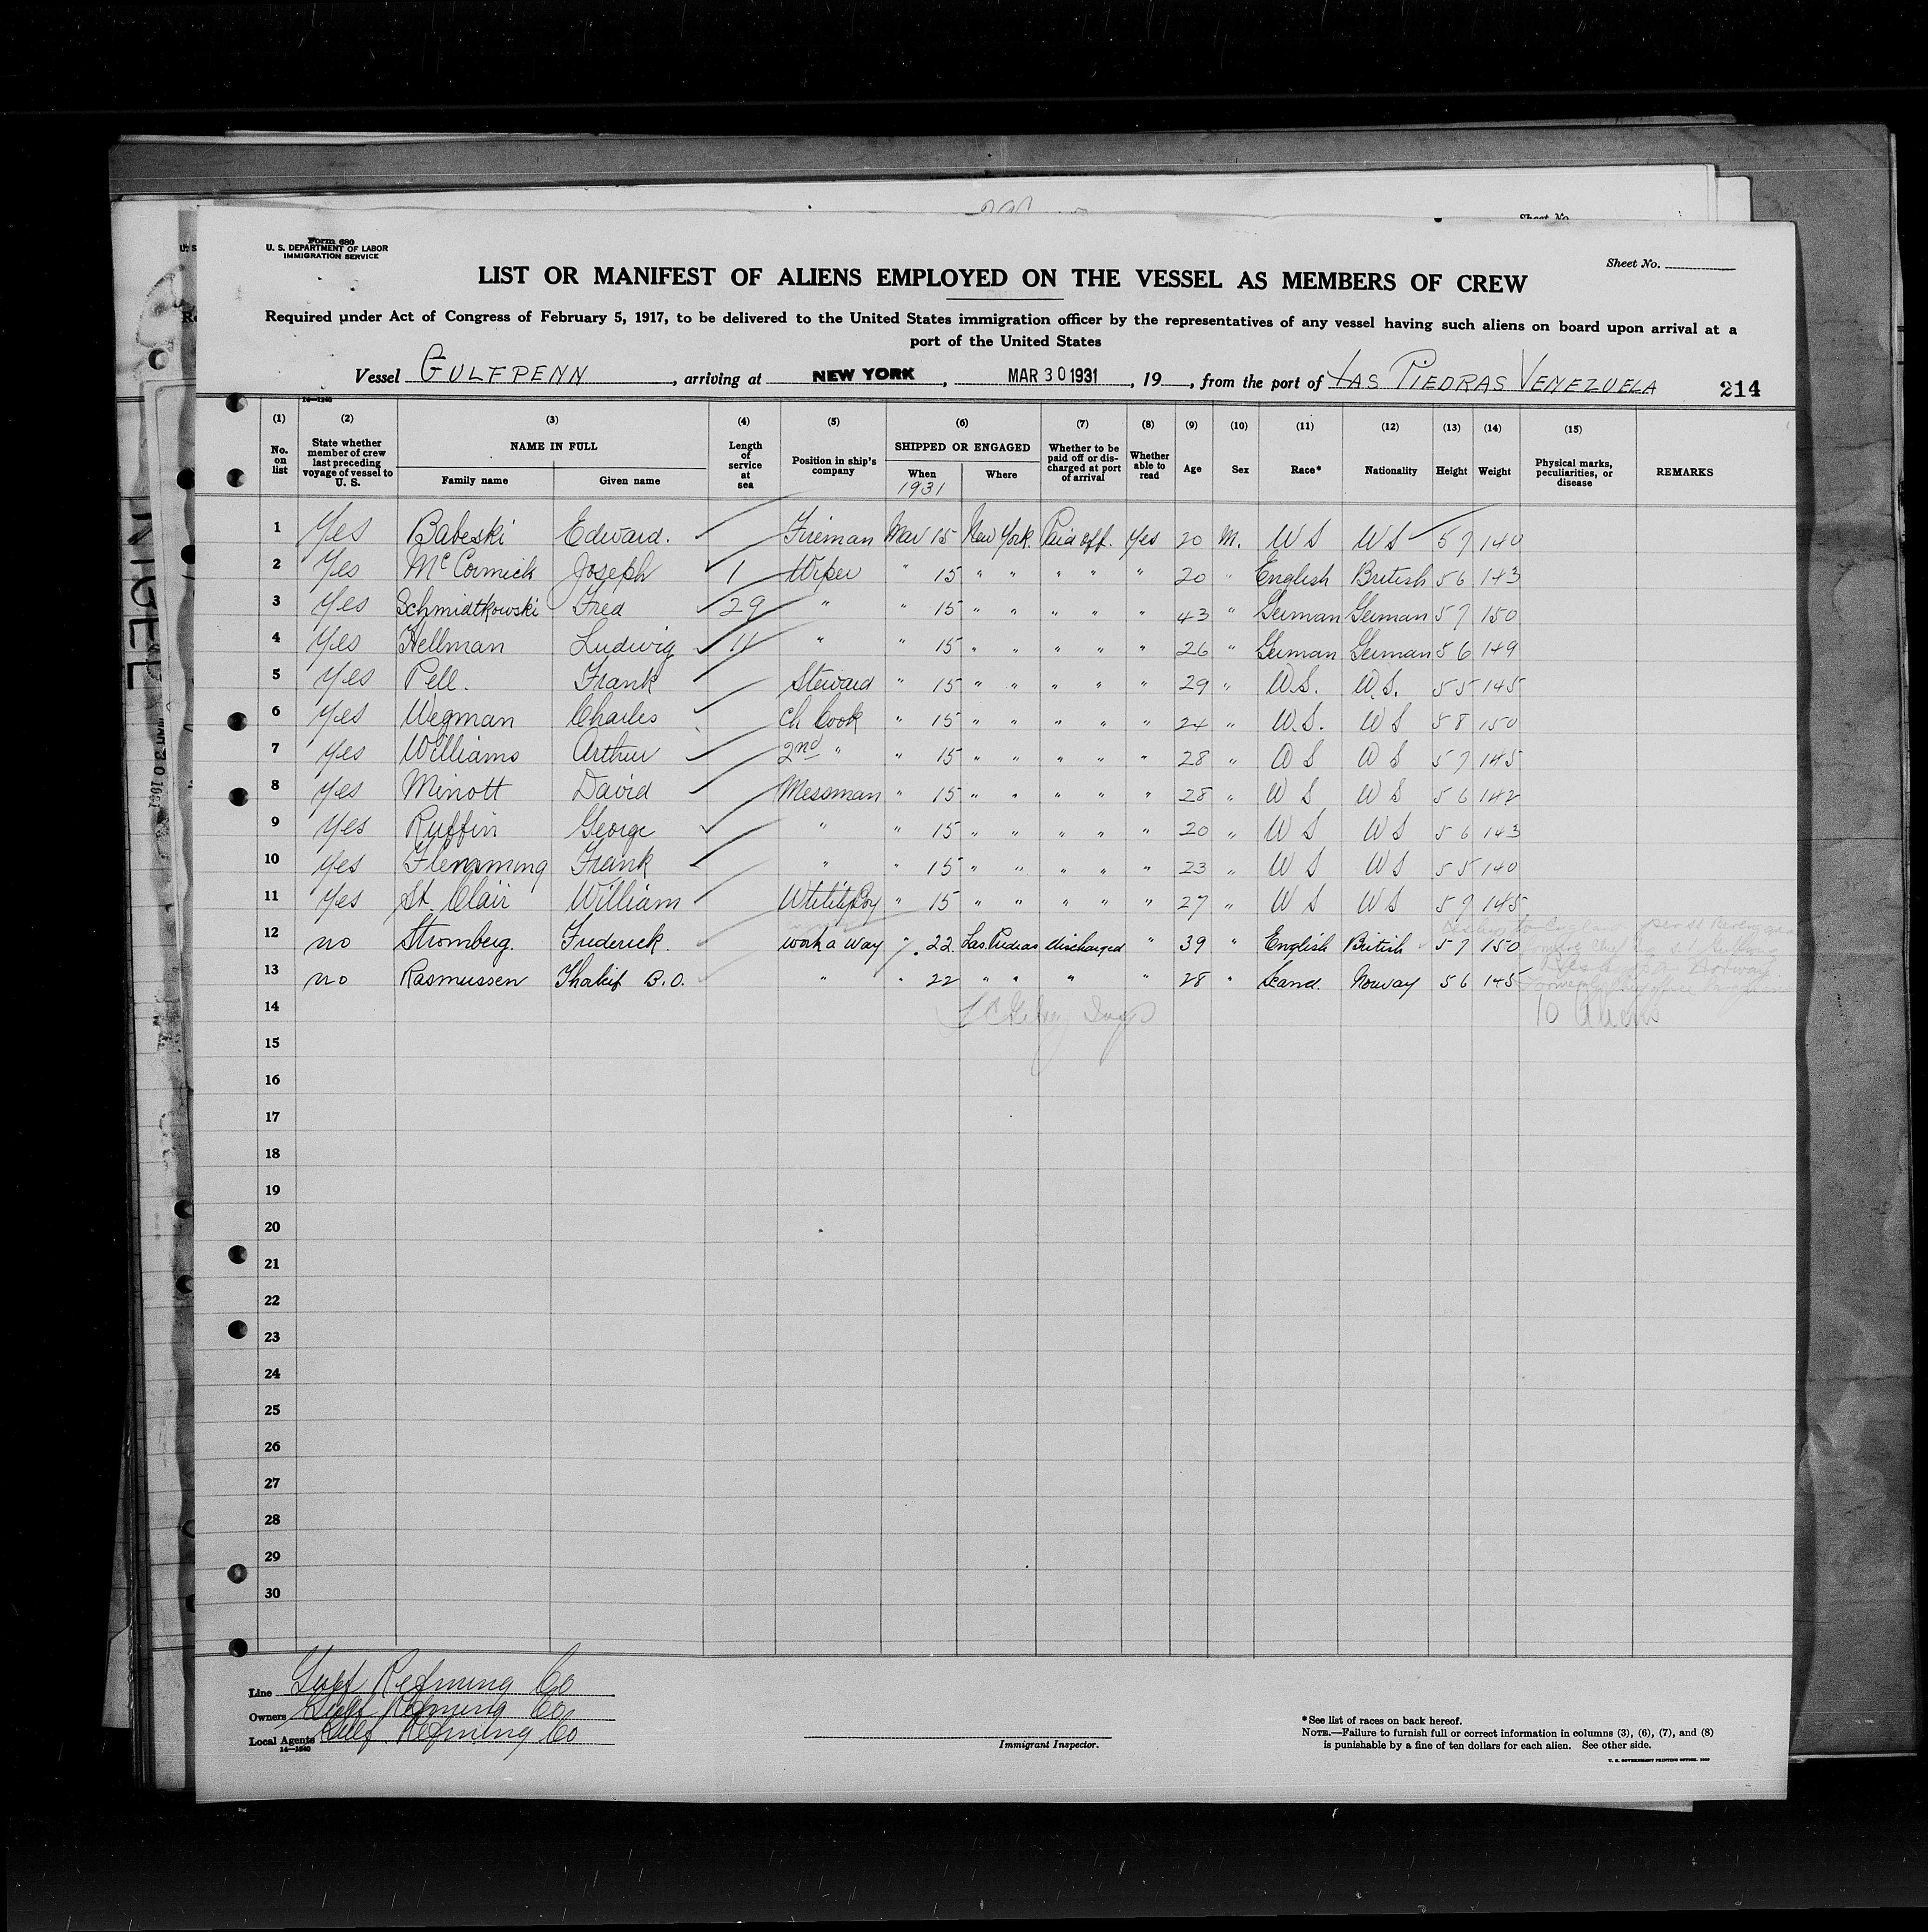 Form 680
U. S. DEPARTMENT OF LABOR
IMMIGRATION SERVICE
Sheet No.
LIST OR MANIFEST OF ALIENS EMPLOYED ON THE VESSEL AS MEMBERS OF CREW
Required under Act of Congress of February 5, 1917, to be delivered to the United States immigration officer by the representatives of any vessel having such aliens on board upon arrival at a
port of the United States
Vessel GULFPENN, arriving at NEW YORK, MAR 30 1931, 19, from the port of LAS PIEDRAS VENEZUELA 214
14—1240
(1) (2) (3) (4) (5) (6) (7) (8) (9) (10) (11) (12) (13) (14) (15)
No. on list State whether member of crew last preceding voyage of vessel to U. S. NAME IN FULL Family name Given name Length of service at sea Position in ship's company SHIPPED OR ENGAGED When 1931 Where Whether to be paid off or discharged at port of arrival Whether able to read Age Sex Race* Nationality Height Weight Physical marks, peculiarities, or disease REMARKS
1 Yes Babeski Edward. Fireman Mar 15 New York. Paid off. Yes 20 M. US US 5 7 140
2 Yes McCormick Joseph 1 Wiper " 15 " " " " " 20 " English British 5 6 143
3 Yes Schmidtkowski Fred 29 " " 15 " " " " " 43 " German German 5 7 150
4 Yes Hellman Ludwig 11 " " 15 " " " " " 26 " German German 5 6 149
5 Yes Pell. Frank Steward " 15 " " " " " 29 " U.S. U.S. 5 5 145
6 Yes Wegman Charles Ch Cook " 15 " " " " " 24 " U.S. US 5 8 150
7 Yes Williams Arthur 2nd " " 15 " " " " " 28 " US US 5 7 145
8 Yes Minott David Messman " 15 " " " " " 28 " US US 5 6 142
9 Yes Ruffin George " " 15 " " " " " 20 " US US 5 6 143
10 Yes Flemming Frank " " 15 " " " " " 23 " US US 5 5 140
11 Yes St. Clair William Utility Boy " 15 " " " " " 27 " US US 5 7 145
12 no Stromberg. Frederick. work a way " 22 Las Piedras discharged " 39 " English British 5 7 150
13 no Rasmussen B.O. " " 22 " " " " 28 " Scand. Norway 5 6 145
14 10 Aliens
15
16
17
18
19
20
21
22
23
24
25
26
27
28
29
30
Line Gulf Refining Co
Owners Gulf Refining Co
Local Agents Gulf Refining Co
14—1240
Immigrant Inspector.
*See list of races on back hereof.
NOTE.—Failure to furnish full or correct information in columns (3), (6), (7), and (8)
is punishable by a fine of ten dollars for each alien. See other side.